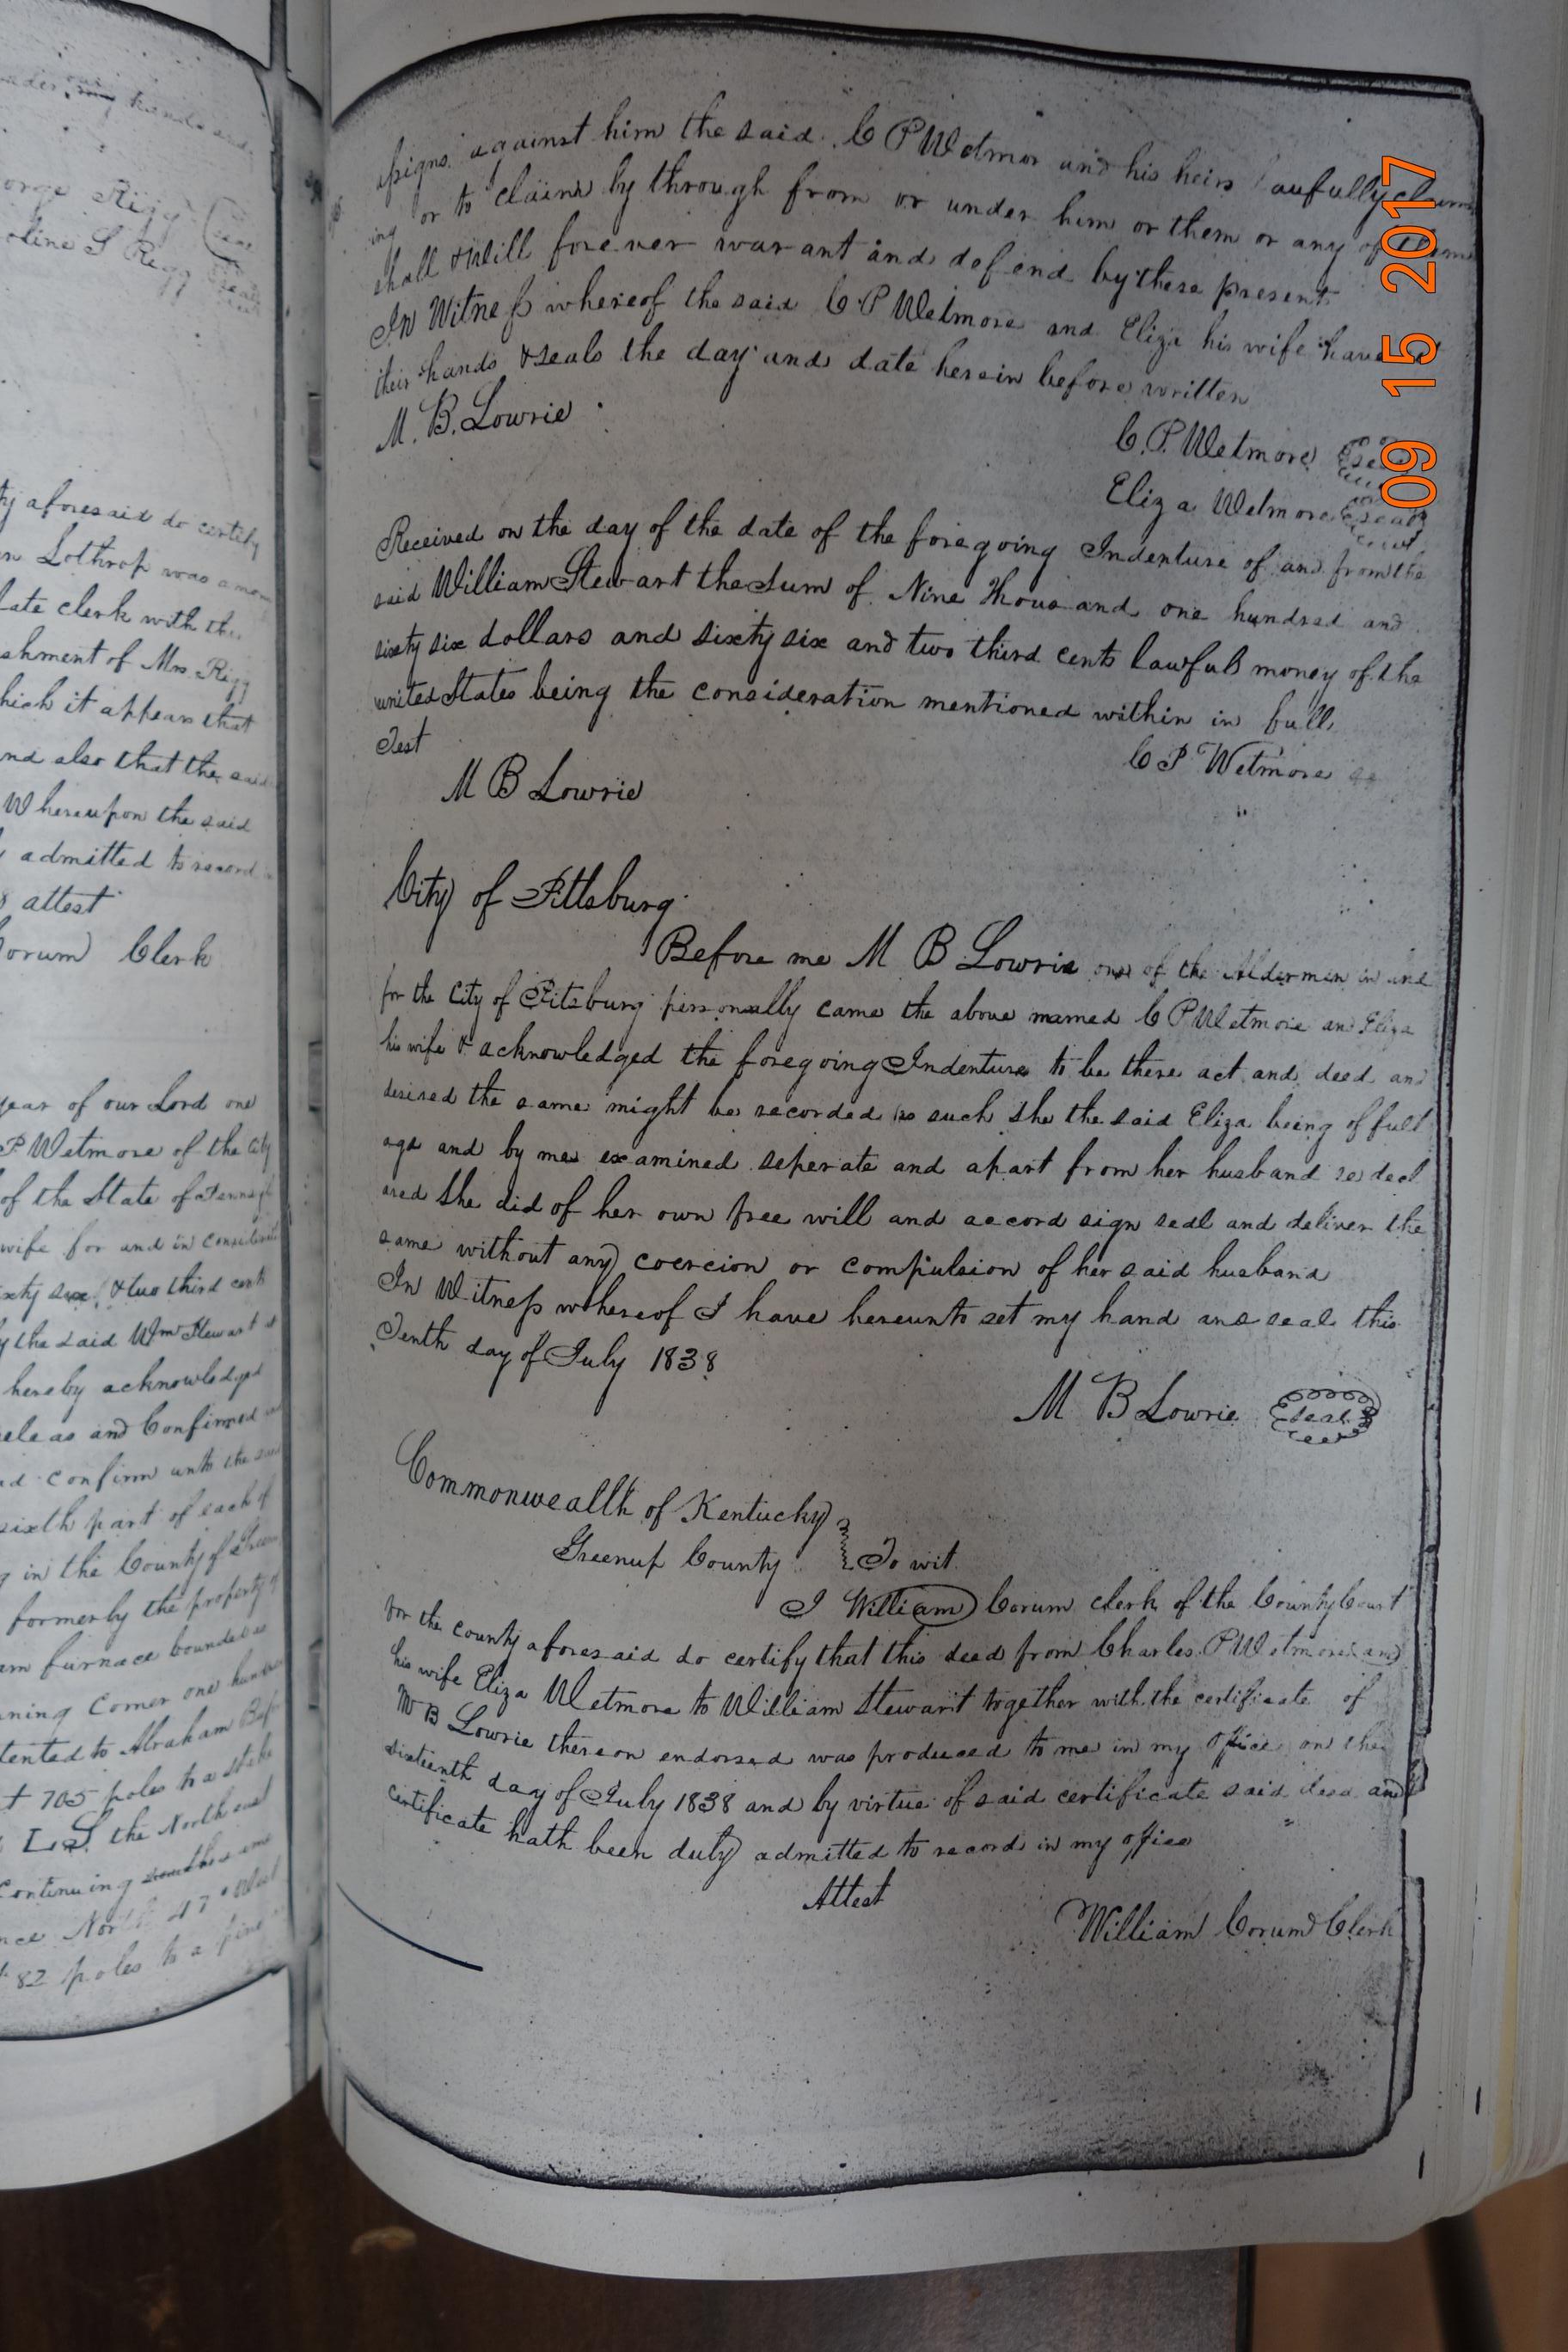 under our my hands and
orge Rigg (Seal
oline S Rigg Seal
ty aforesaid do certify
n Lothrop was a
late clerk with the
shment of Mrs. Rigg
hich it appears that
nd also that the said
Whereupon the said
admitted to record
attest
Corum Clerk
year of our Lord one
P Wetmore of the City
of the State of
wife for and in
xty six, & two third cents
y the said Wm Stewart
hereby acknowledged
ele as and Confirmed
nd confirm unto the
sixth part of each of
g in the County of
formerly the property of
am furnace bounded as
nning Corner one
tented to Abraham
t 705 poles to a stake
L S. the North east
Continuing
nce North 47° West
82 poles to a pine
assigns against him the said C P Wetmor and his heirs lawfully claim
ing or to claim by through from or under him or them or any of them
shall & will forever warant and defend by these present
In Witness whereof the said C P Wetmore and Eliza his wife have
their hands & seals the day and date herein before written
M. B. Lowrie
C. P. Wetmore Seal
Eliza Wetmore Seal
Received on the day of the date of the foregoing Indenture of and from the
said William Stewart the Sum of Nine Thousand one hundred and
sixty six dollars and sixty six and two third cents lawful money of the
united States being the consideration mentioned within in full
Test
C P Wetmore
M B Lowrie
City of Pittsburg
Before me M B Lowrie one of the Aldermen in and
for the City of Pitsburg personally came the above named C P Wetmore and Eliza
his wife & acknowledged the foregoing Indenture to be there act and deed and
desired the same might be recorded as such she the said Eliza being of full
age and by me examined seperate and apart from her husband
ared she did of her own free will and accord sign seal and deliver the
same without any coercion or compulsion of her said husband
In Witness whereof I have hereunto set my hand and seal this
Tenth day of July 1838
M B Lowrie Seal
Commonwealth of Kentucky
Greenup County To wit
I William Corum clerk of the County Court
for the county aforesaid do certify that this deed from Charles P Wetmore and
his wife Eliza Wetmore to William Stewart together with the certificate of
M B Lowrie thereon endorsed was produced to me in my office on the
sixteenth day of July 1838 and by virtue of said certificate said deed and
certificate hath been duly admitted to record in my office
Attest
William Corum Clerk
09 15 2017